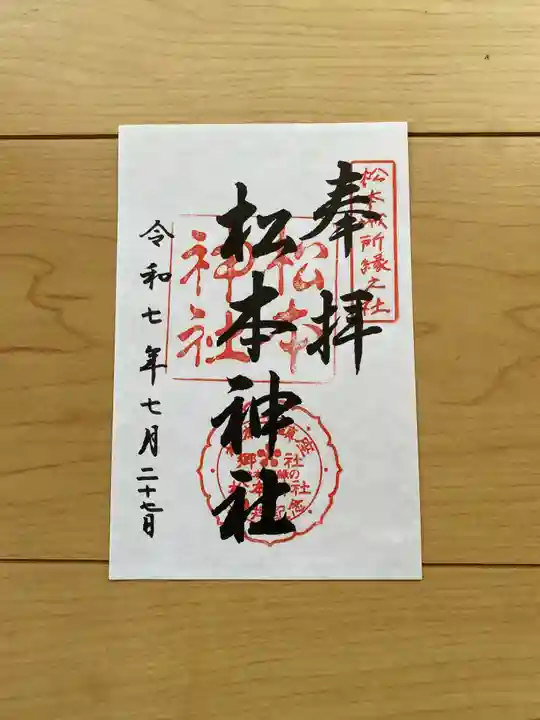 奉拝
松本城所縁之社
松本神社
松本
神社
郷社
令和七年七月二十七日